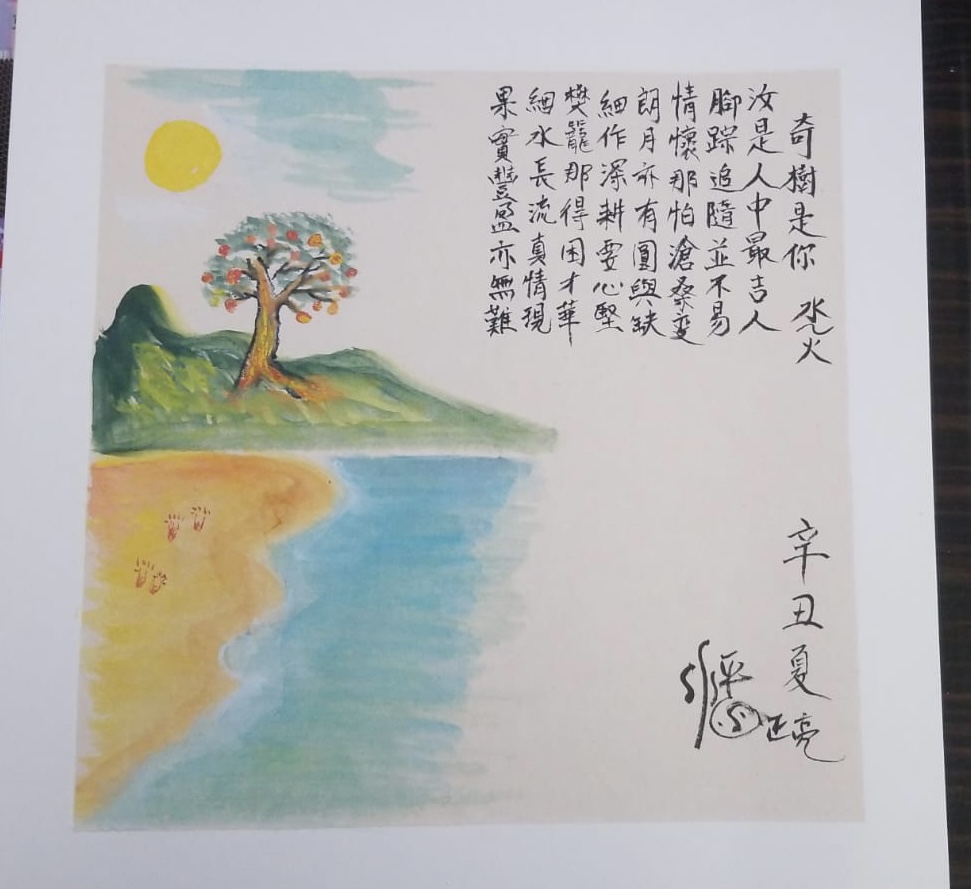 奇樹是你 水火
汝是人中最吉人
腳踪追隨並不易
情懷那怕滄桑变
朗月亦有圓與缺
細作深耕要心堅
樊籠那得困才華
細水長流真情現
果實豐盛亦無難
辛丑夏
正亮
平